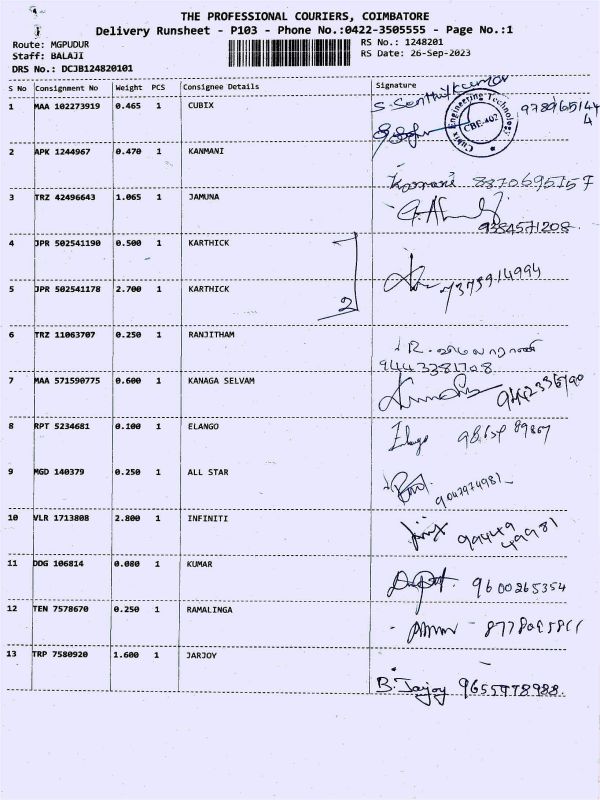 THE PROFESSIONAL COURIERS, COIMBATORE
Delivery Runsheet - P103 - Phone No.:0422-3505555 - Page No.:1
Route: MGPUDUR
RS No.: 1248201
Staff: BALAJI
RS Date: 26-Sep-2023
DRS No.: DCJB124820101
S No Consignment No Weight PCS Consignee Details Signature
1 MAA 102273919 0.465 1 CUBIX
S. Senthilkumar
Cubix Engineering Technology
CBE-402
2 APK 1244967 0.470 1 KANMANI
Kanmani 8870695157
3 TRZ 42496643 1.065 1 JAMUNA
9384571208
4 JPR 502541190 0.500 1 KARTHICK
5 JPR 502541178 2.700 1 KARTHICK
2
7373914994
6 TRZ 11063707 0.250 1 RANJITHAM
9443381708
7 MAA 571590775 0.600 1 KANAGA SELVAM
8 RPT 5234681 0.100 1 ELANGO
Elago
9 MGD 140379 0.250 1 ALL STAR
9042974981
10 VLR 1713808 2.800 1 INFINITI
99449
49981
11 DDG 106814 0.080 1 KUMAR
9600265354
12 TEN 7578670 0.250 1 RAMALINGA
13 TRP 7580920 1.600 1 JARJOY
B. Jarjoy 9655778988.